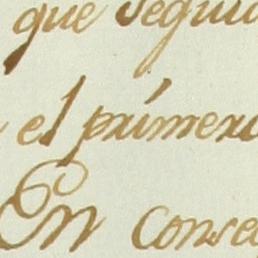 que seguid
el primero
En Conse